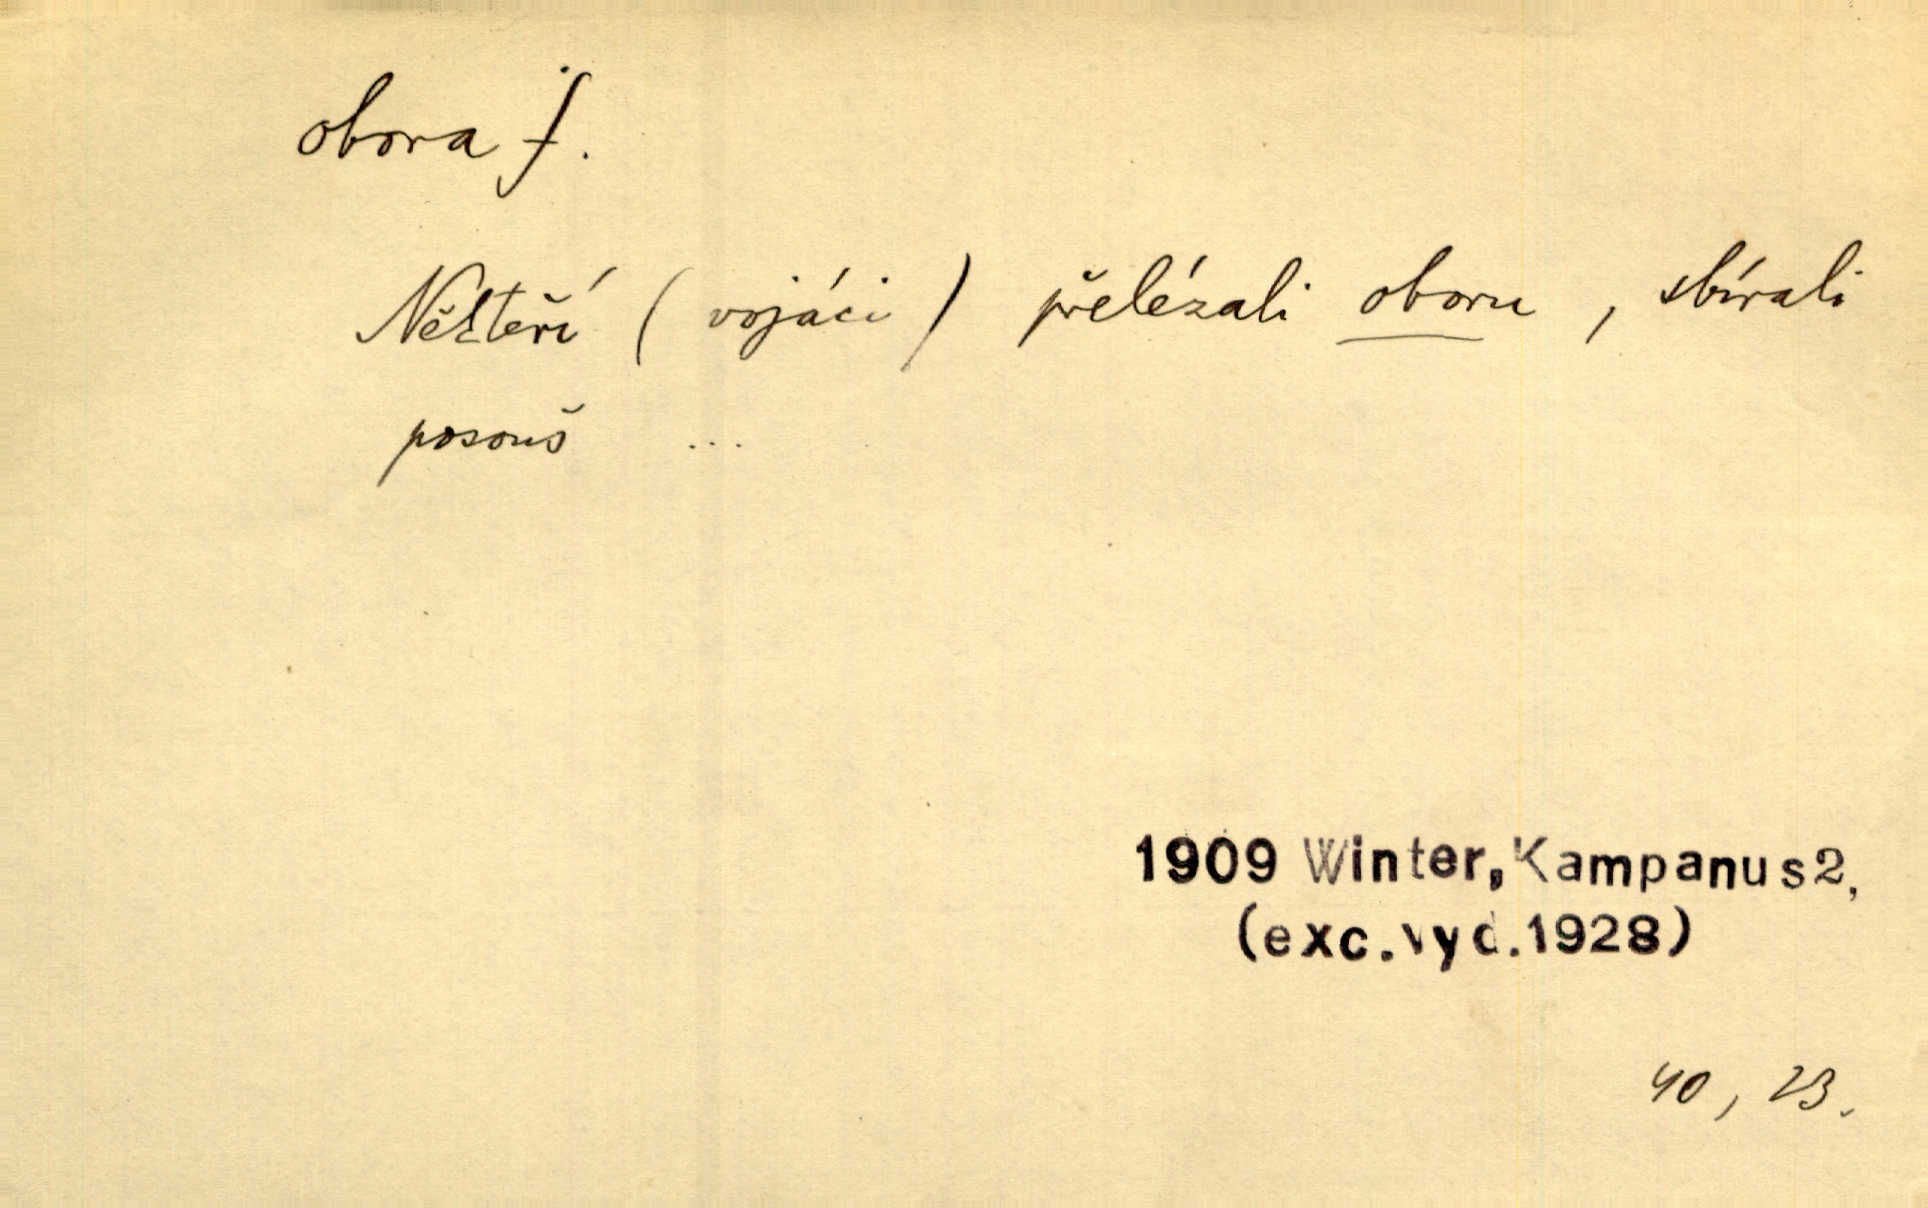 obora f.
Někteří (vojáci) přelézali oboru, sbírali
posouš ...
1909 Winter, Kampanus 2,
(exc. vyd. 1928)
40, 23.